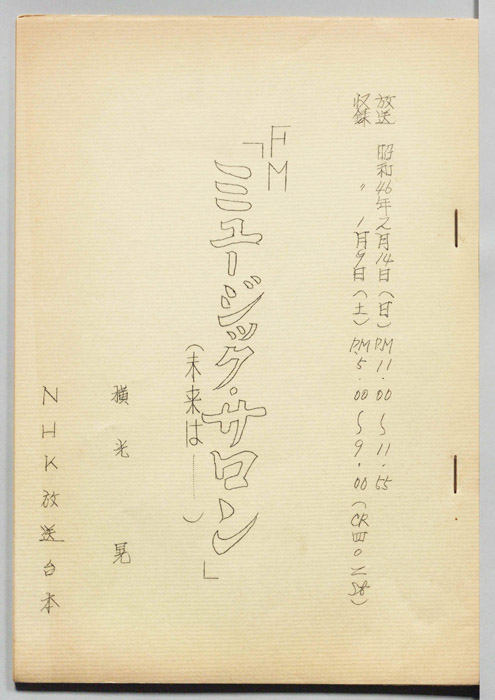 放送 昭和46年2月14日(日)PM11.00〜11.55
収録 〃 1月9日(土)PM.5.00〜9.00(CR四〇二St)
「FM
ミュージック・サロン」
(未来は……)
横光晃
NHK放送台本